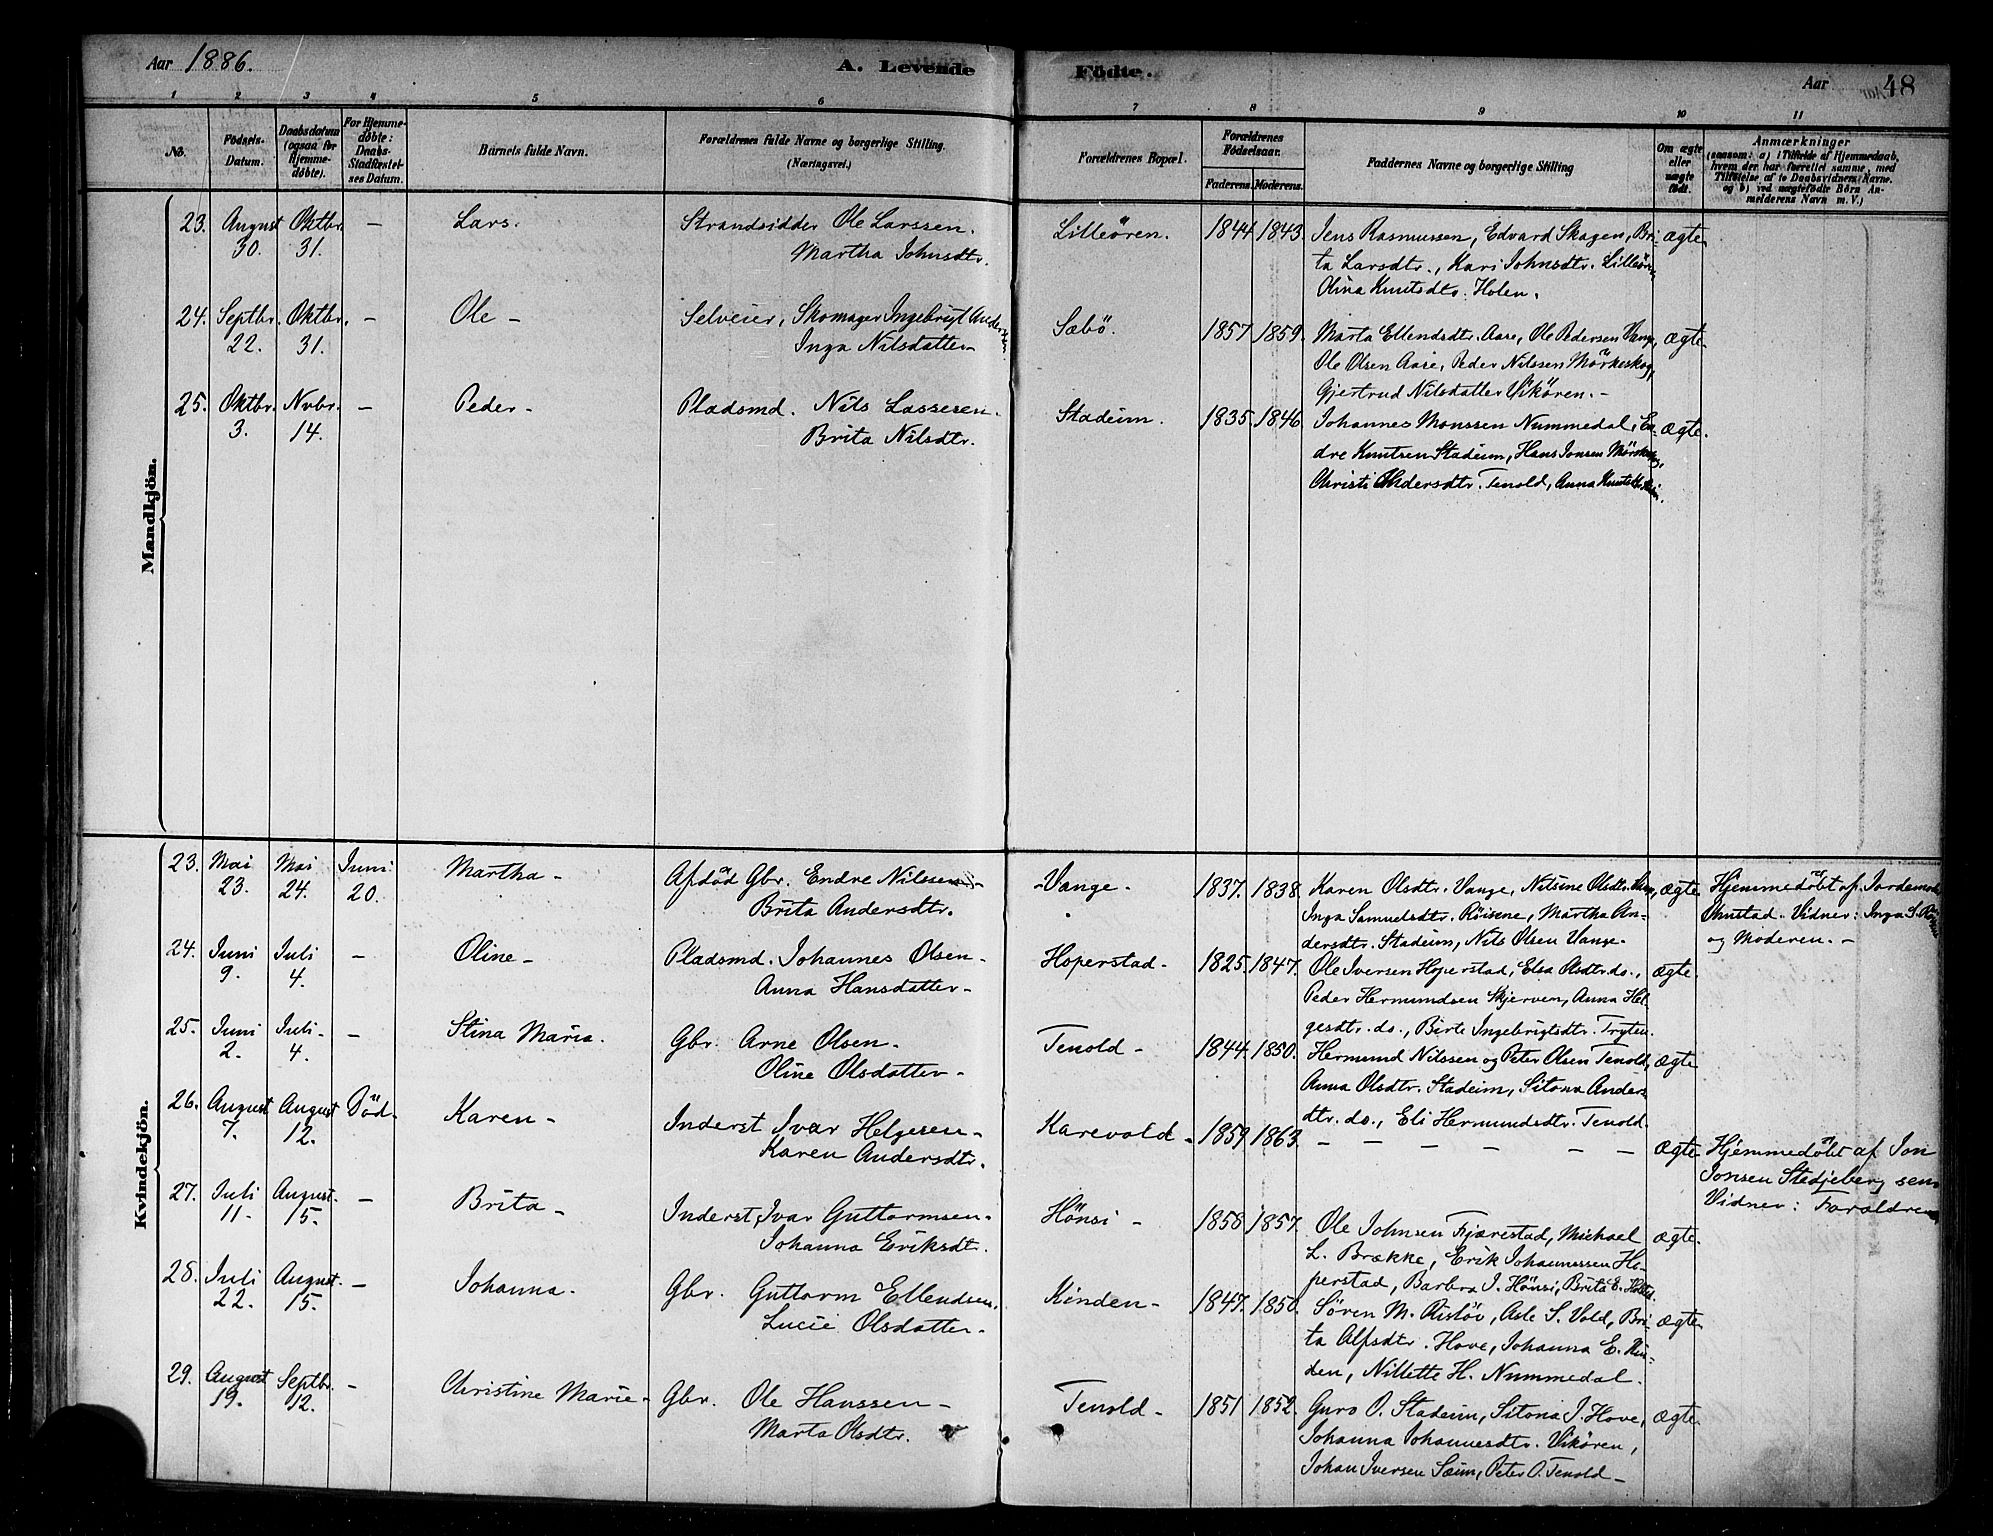 Aar 1886.
A. Levende Födte.
Aar 48
1 2 3 4 5 6 7 8 9 10 11
No.
Födsels-Datum.
Daabsdatum (ogsaa for Hjemme-döbte).
For Hjemme-döbte: Daabs-Stadfæstel-ses Datum.
Barnets fulde Navn.
Forældrenes fulde Navne og borgerlige Stilling. (Næringsvei.)
Forældrenes Bopæl.
Forældrenes Födselsaar.
Faderens. Moderens.
Faddernes Navne og borgerlige Stilling
Om ægte eller uægte født.
Anmærkninger
(saasom: a) i Tilfælde af Hjemmedaab,
hvem der har forrettet samme, med
Tilføielse af to Daabsvidners Navne.
og b) ved uægtefødte Börn An-
melderens Navn m. V.)
Mandkjön.
23. August 30. Oktbr. 31. – Lars. Strandsidder Ole Larssen. Lilleören. 1844 1843. Jens Rasmussen, Edvard Skagen, Bri- ægte
Martha Johnsdtr. ta Larsdtr., Kari Johnsdtr. Lilleören,
Olina Knutsdtr. Holen.
24. Septbr. 22. Oktbr. 31. – Ole – Selveier, Skomager Ingebrigt Andersen Sæbö. 1857 1859. Marta Ellendsdtr. Aase, Ole Pedersen Vange, ægte.
Inga Nilsdatter – Ole Olsen Aase, Peder Nilssen Mörkeskog,
Gjertrud Nilsdatter Vikören. –
25. Oktbr. 3. Novbr. 14. – Peder – Pladsmd. Nils Lassesen. Stadeim. 1835. 1846. Johannes Monssen Nummedal, En- ægte.
Brita Nilsdtr. dre Knutsen Stadeim, Hans Jonsen
Christi Andersdtr. Tenold, Anna
Kvindekjön.
23. Mai 23. Mai 24. Juni 20. Martha – Afdöd Gbr. Endre Nilssen – Vange. 1837. 1838. Karen Olsdtr. Vange, Nilsine Olsdtr. ægte Hjemmedöbt af Jordemoder
Brita Andersdtr. Inga Samuelsdtr. Röisene, Martha An- Vidner: Inga S.
dersdtr. Stadeim, Nils Olsen Vange. og Moderen. –
24. Juni 9. Juli 4. – Oline – Pladsmd. Johannes Olsen – Hoperstad – 1825. 1847. Ole Iversen Hoperstad, Elsa Olsdtr. do., ægte.
Anna Hansdatter – Peder Hermundsen Skjerven, Anna Hel-
gesdtr. do., Birte Ingebrigtsdtr. Tryten.
25. Juni 2. Juli 4. – Stina Maria. Gbr. Arne Olsen – Tenold – 1844. 1850. Hermund Nilssen og Peter Olsen Tenold, ægte
Oline Olsdatter – Anna Olsdtr. Stadeim, Sitona Anders-
dtr. do., Eli Hermundsdtr. Tenold.
26. August 7. August 12. Död. Karen – Inderst Ivar Helgesen – Karevold – 1859. 1863. – – – – – – ægte Hjemmedöbt af Jon
Karen Andersdtr. Jonsen Stedjeberg sen.
Vidner: Forældrene
27. Juli 11. August. 15. – Brita – Inderst, Ivar Guttormsen. Hönsi – 1858 1857. Ole Johnsen Fjærestad, Michael ægte.
Johanna Eriksdt. L. Brække, Erik Johannessen Ho-
perstad, Barbra I. Hönsi, Brita E.
28. Juli 22. August. 15. – Johanna. Gbr. Guttorm Ellendsen. Kinden – 1847. 1850. Sören M. Asle S. Vold, Bri- ægte.
Lucie Olsdatter – ta Alfsdtr. Hove, Johanna E. Kin-
den, Nillette H. Nummedal.
29. August 19. Septbr. 12. – Christine Marie – Gbr. Ole Hanssen – Tenold – 1851 1852. Guro O. Stadeim, Sitona J. Hove, ægte.
Marta Olsdtr. Johanna Johannesdtr. Vikören,
Johan Iversen Sæim, Peter O. Tenold –